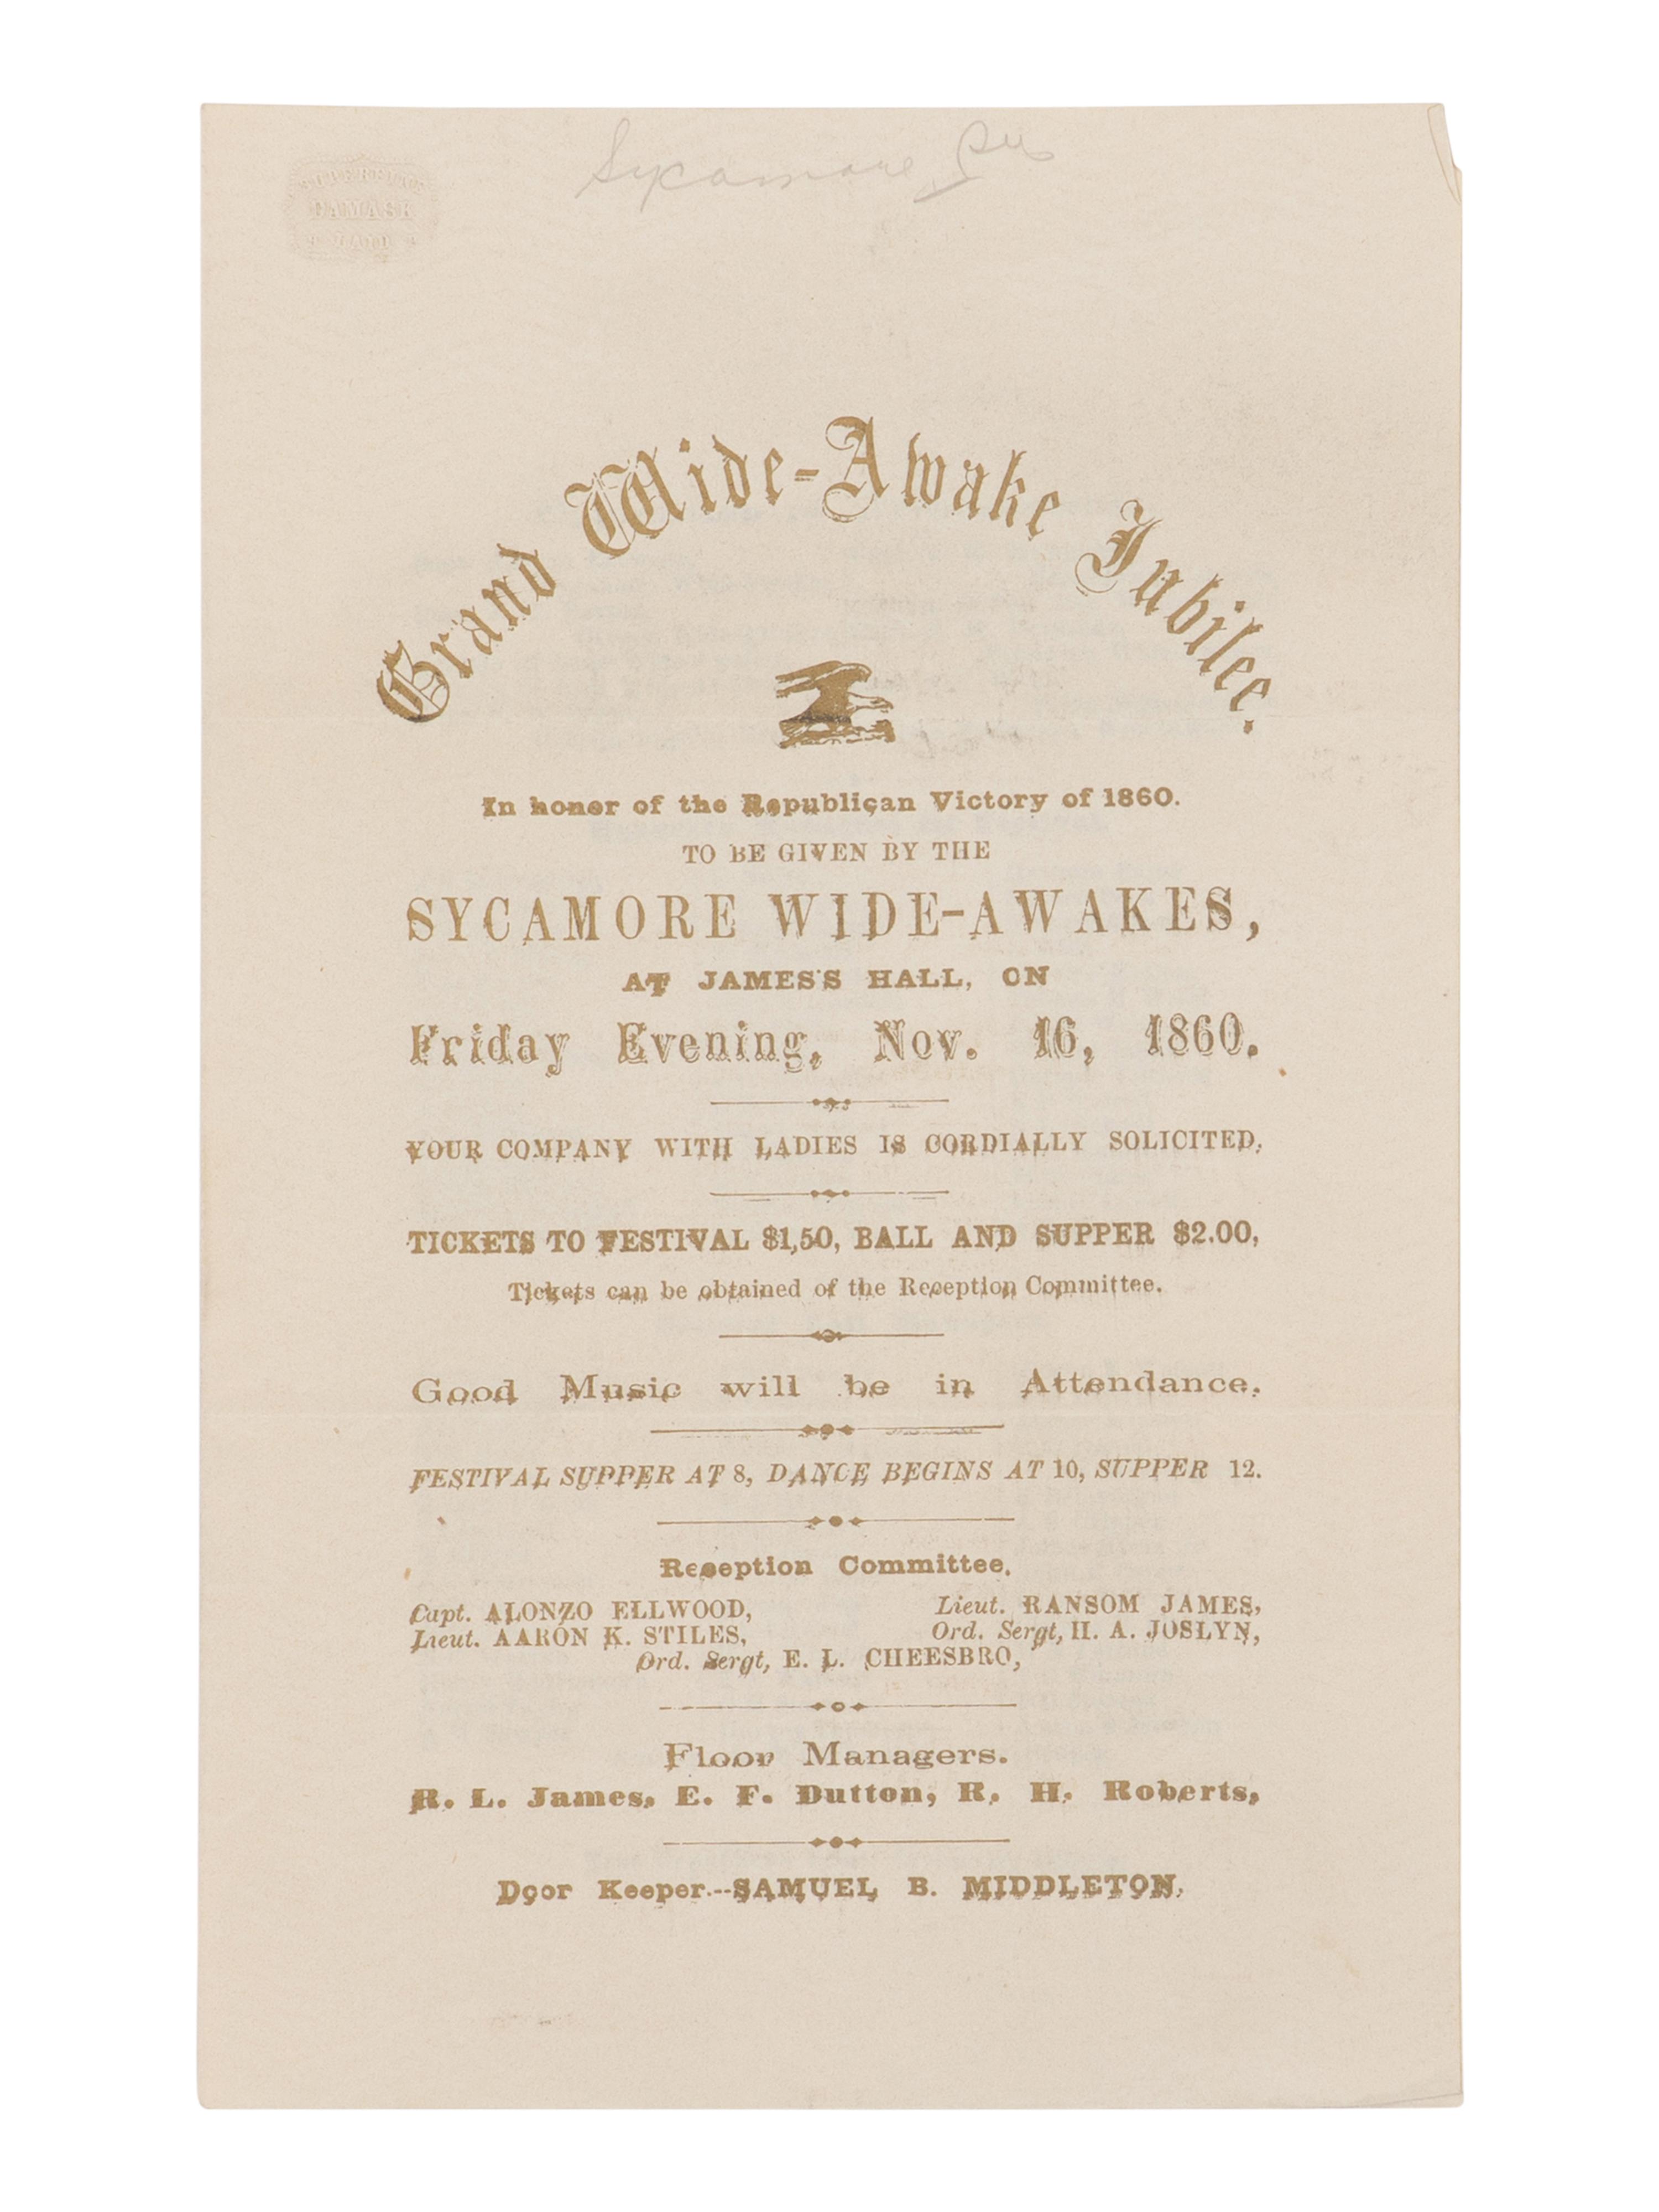 Sycamore
DAMASK
LAID
Grand Wide-Awake Jubilee.
In honor of the Republican Victory of 1860.
TO BE GIVEN BY THE
SYCAMORE WIDE-AWAKES,
AT JAMES'S HALL, ON
Friday Evening, Nov. 16, 1860.
YOUR COMPANY WITH LADIES IS CORDIALLY SOLICITED.
TICKETS TO FESTIVAL $1,50, BALL AND SUPPER $2.00,
Tickets can be obtained of the Reception Committee.
Good Music will be in Attendance.
FESTIVAL SUPPER AT 8, DANCE BEGINS AT 10, SUPPER 12.
Reception Committee.
Capt. ALONZO ELLWOOD, Lieut. RANSOM JAMES,
Lieut. AARON K. STILES, Ord. Sergt, H. A. JOSLYN,
Ord. Sergt, E. L. CHEESBRO,
Floor Managers.
R. L. James, E. F. Dutton, R. H. Roberts,
Door Keeper.--SAMUEL B. MIDDLETON.